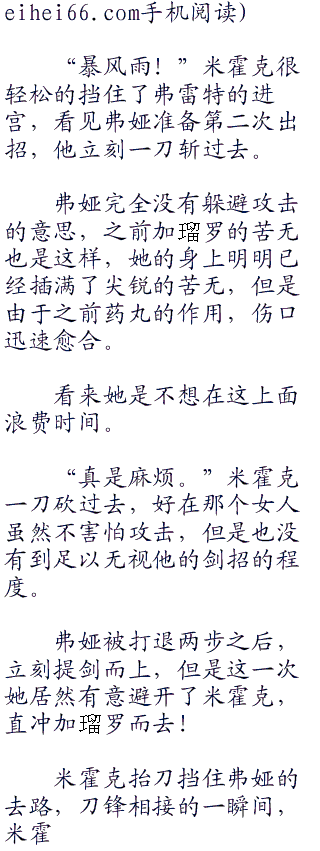 eihei66.com手机阅读)
“暴风雨！”米霍克很
轻松的挡住了弗雷特的进
宫，看见弗娅准备第二次出
招，他立刻一刀斩过去。
弗娅完全没有躲避攻击
的意思，之前加瑠罗的苦无
也是这样，她的身上明明已
经插满了尖锐的苦无，但是
由于之前药丸的作用，伤口
迅速愈合。
看来她是不想在这上面
浪费时间。
“真是麻烦。”米霍克
一刀砍过去，好在那个女人
虽然不害怕攻击，但是也没
有到足以无视他的剑招的程
度。
弗娅被打退两步之后，
立刻提剑而上，但是这一次
她居然有意避开了米霍克，
直冲加瑠罗而去！
米霍克抬刀挡住弗娅的
去路，刀锋相接的一瞬间，
米霍